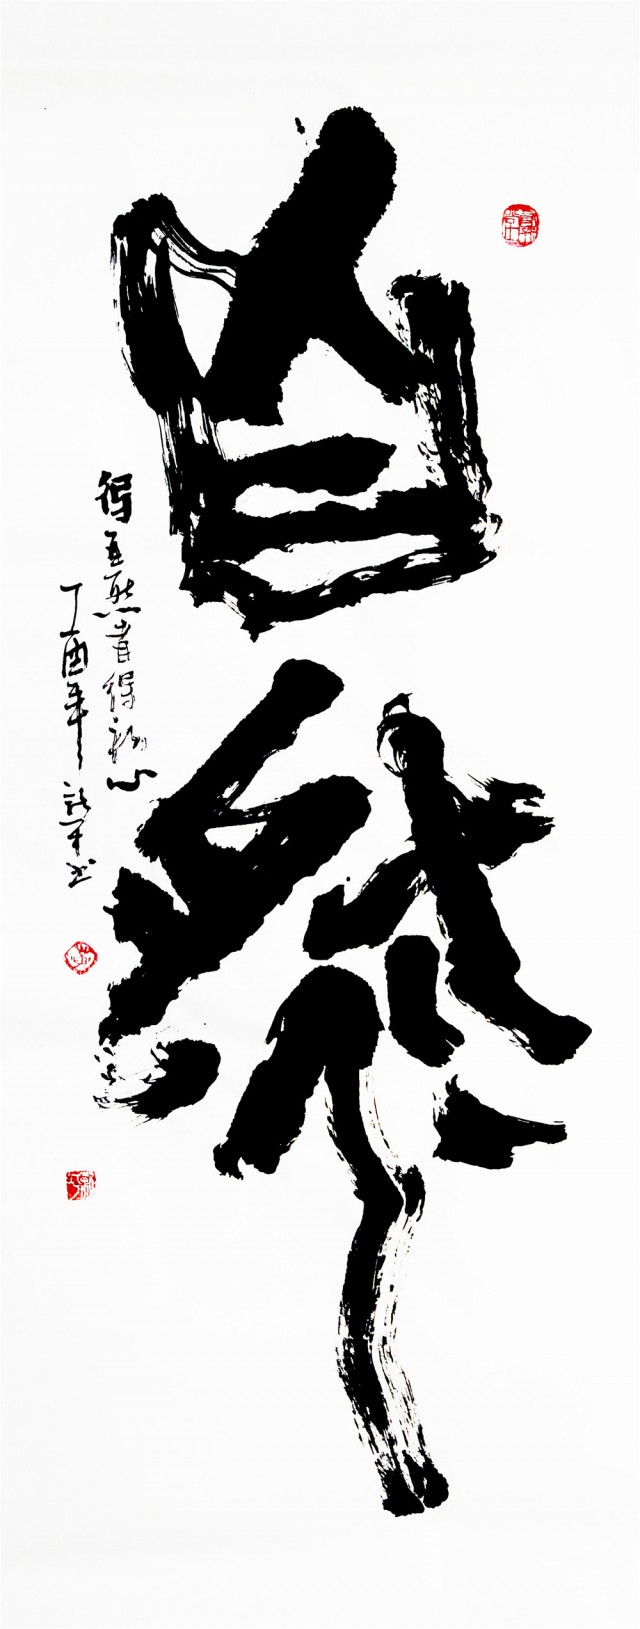 自然
得自然者得初心
丁酉年